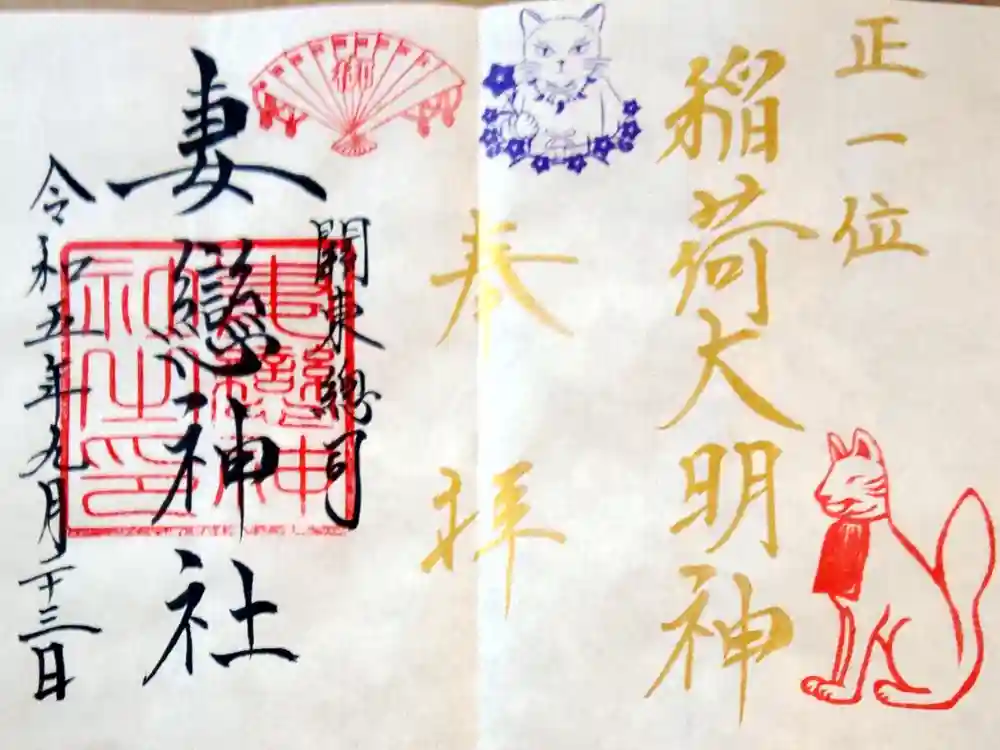 正一位
稲荷大明神
奉拝
關東總司
妻戀神社
令和五年九月二十三日
御